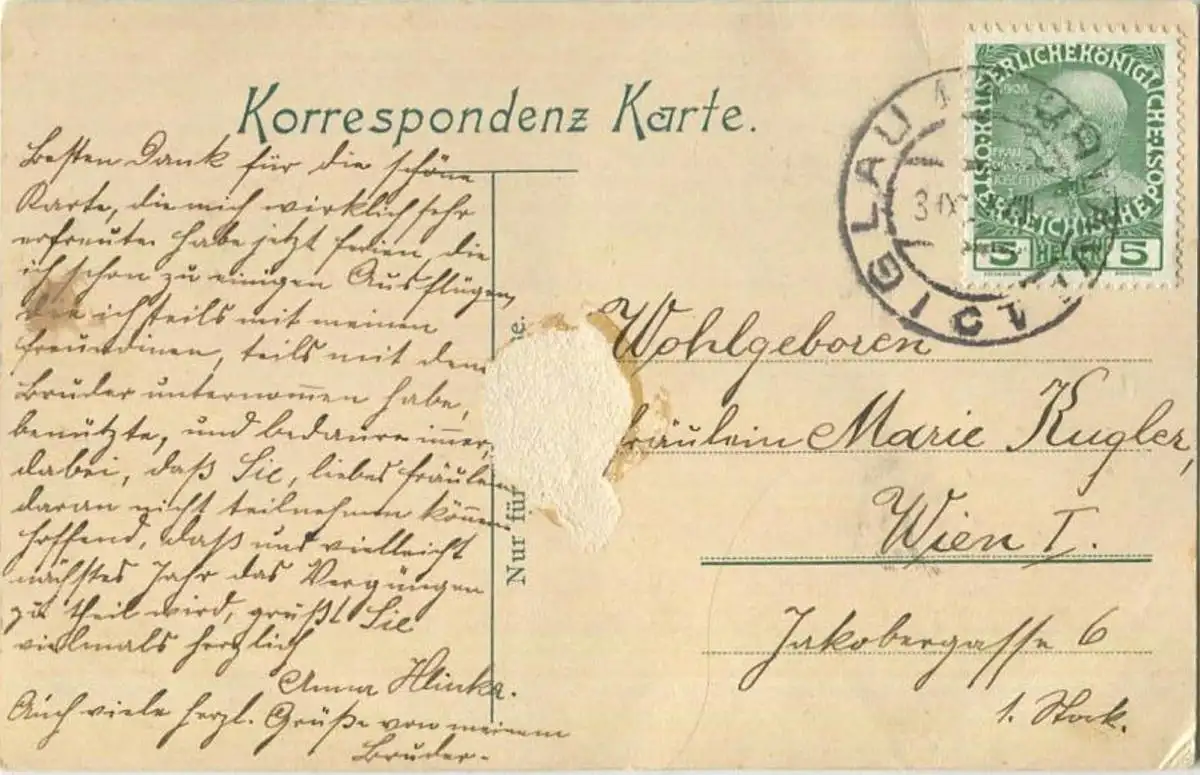 Korrespondenz Karte.
Besten Dank für die schöne
Karte, die mich wirklich sehr
erfreute. Habe jetzt Ferien, die
ich schon zu einigen Ausflügen,
die ich teils mit meinen
Freundinen, teils mit dem
Bruder unternommen habe,
benützte, und bedaure immer,
dabei, daß Sie, liebes Fräulein
daran nicht teilnehmen können
hoffend, daß uns vielleicht
nächstes Jahr das Vergüngen
zu theil wird, grüßt Sie
vielmals herzlich
Anna Hlinka.
Auch viele herzl. Grüße von meinem
Bruder.
Nur für
IGLAU
KAISERLICHE KÖNIGLICHE ÖSTERREICHISCHE POST
1908
5 HELLER 5
Wohlgeboren
Fräulein Marie Kugler,
Wien I.
Jakobergasse 6
1. Stock.